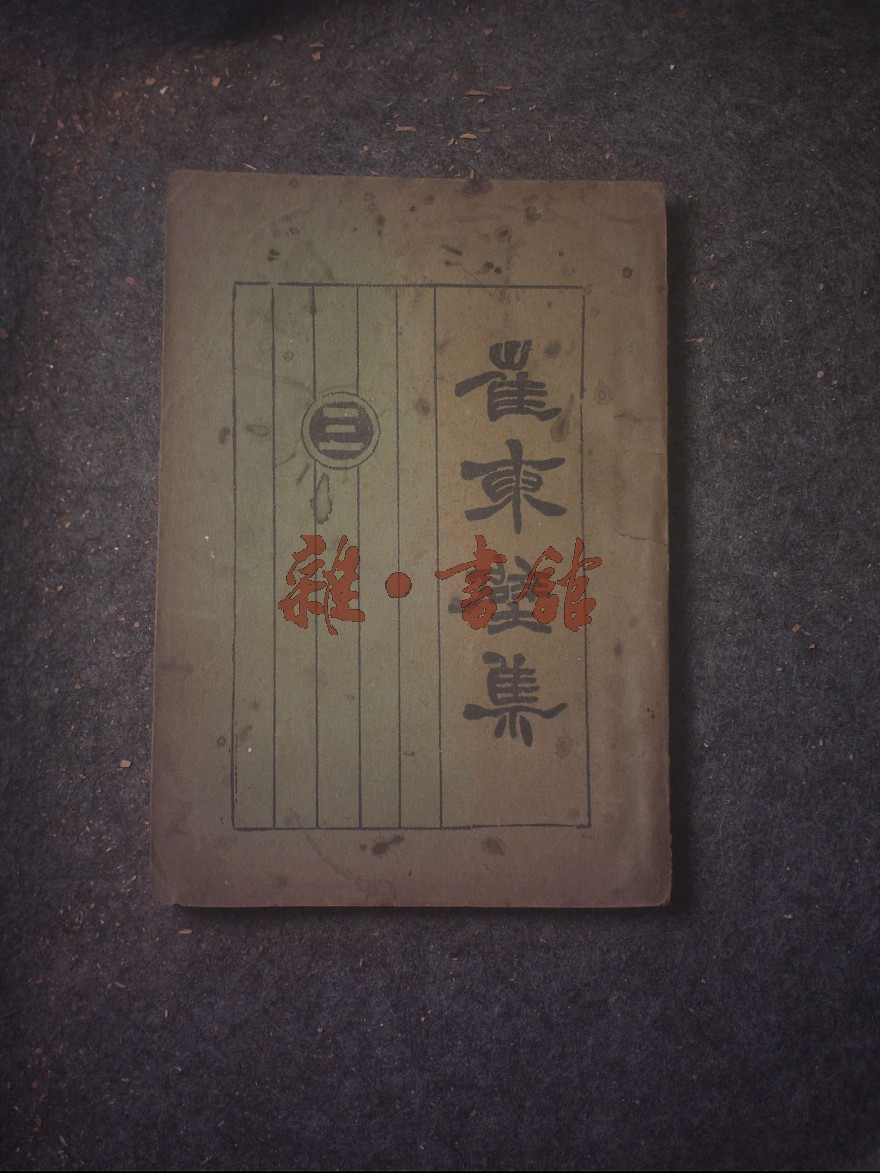 崔東壁集
三
雜·書館